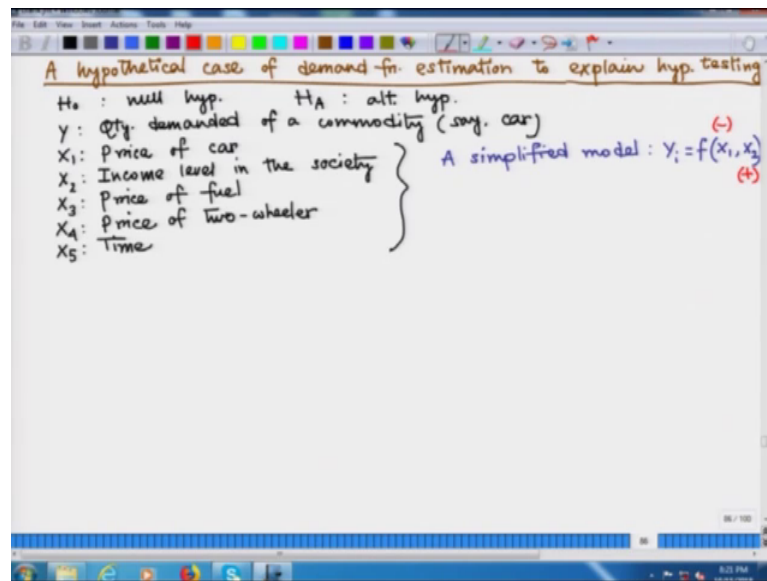 File Edit View Insert Actions Tools Help
A hypothetical case of demand fn. estimation to explain hyp. testing
H₀ : null hyp. H_A : alt. hyp.
Y : Qty. demanded of a commodity (say. car)
X₁ : Price of car
X₂ : Income level in the society
X₃ : Price of fuel
X₄ : Price of two-wheeler
X₅ : Time
(-)
A simplified model : Yᵢ = f(X₁, X₂)
(+)
86 / 100
86
8:21 PM